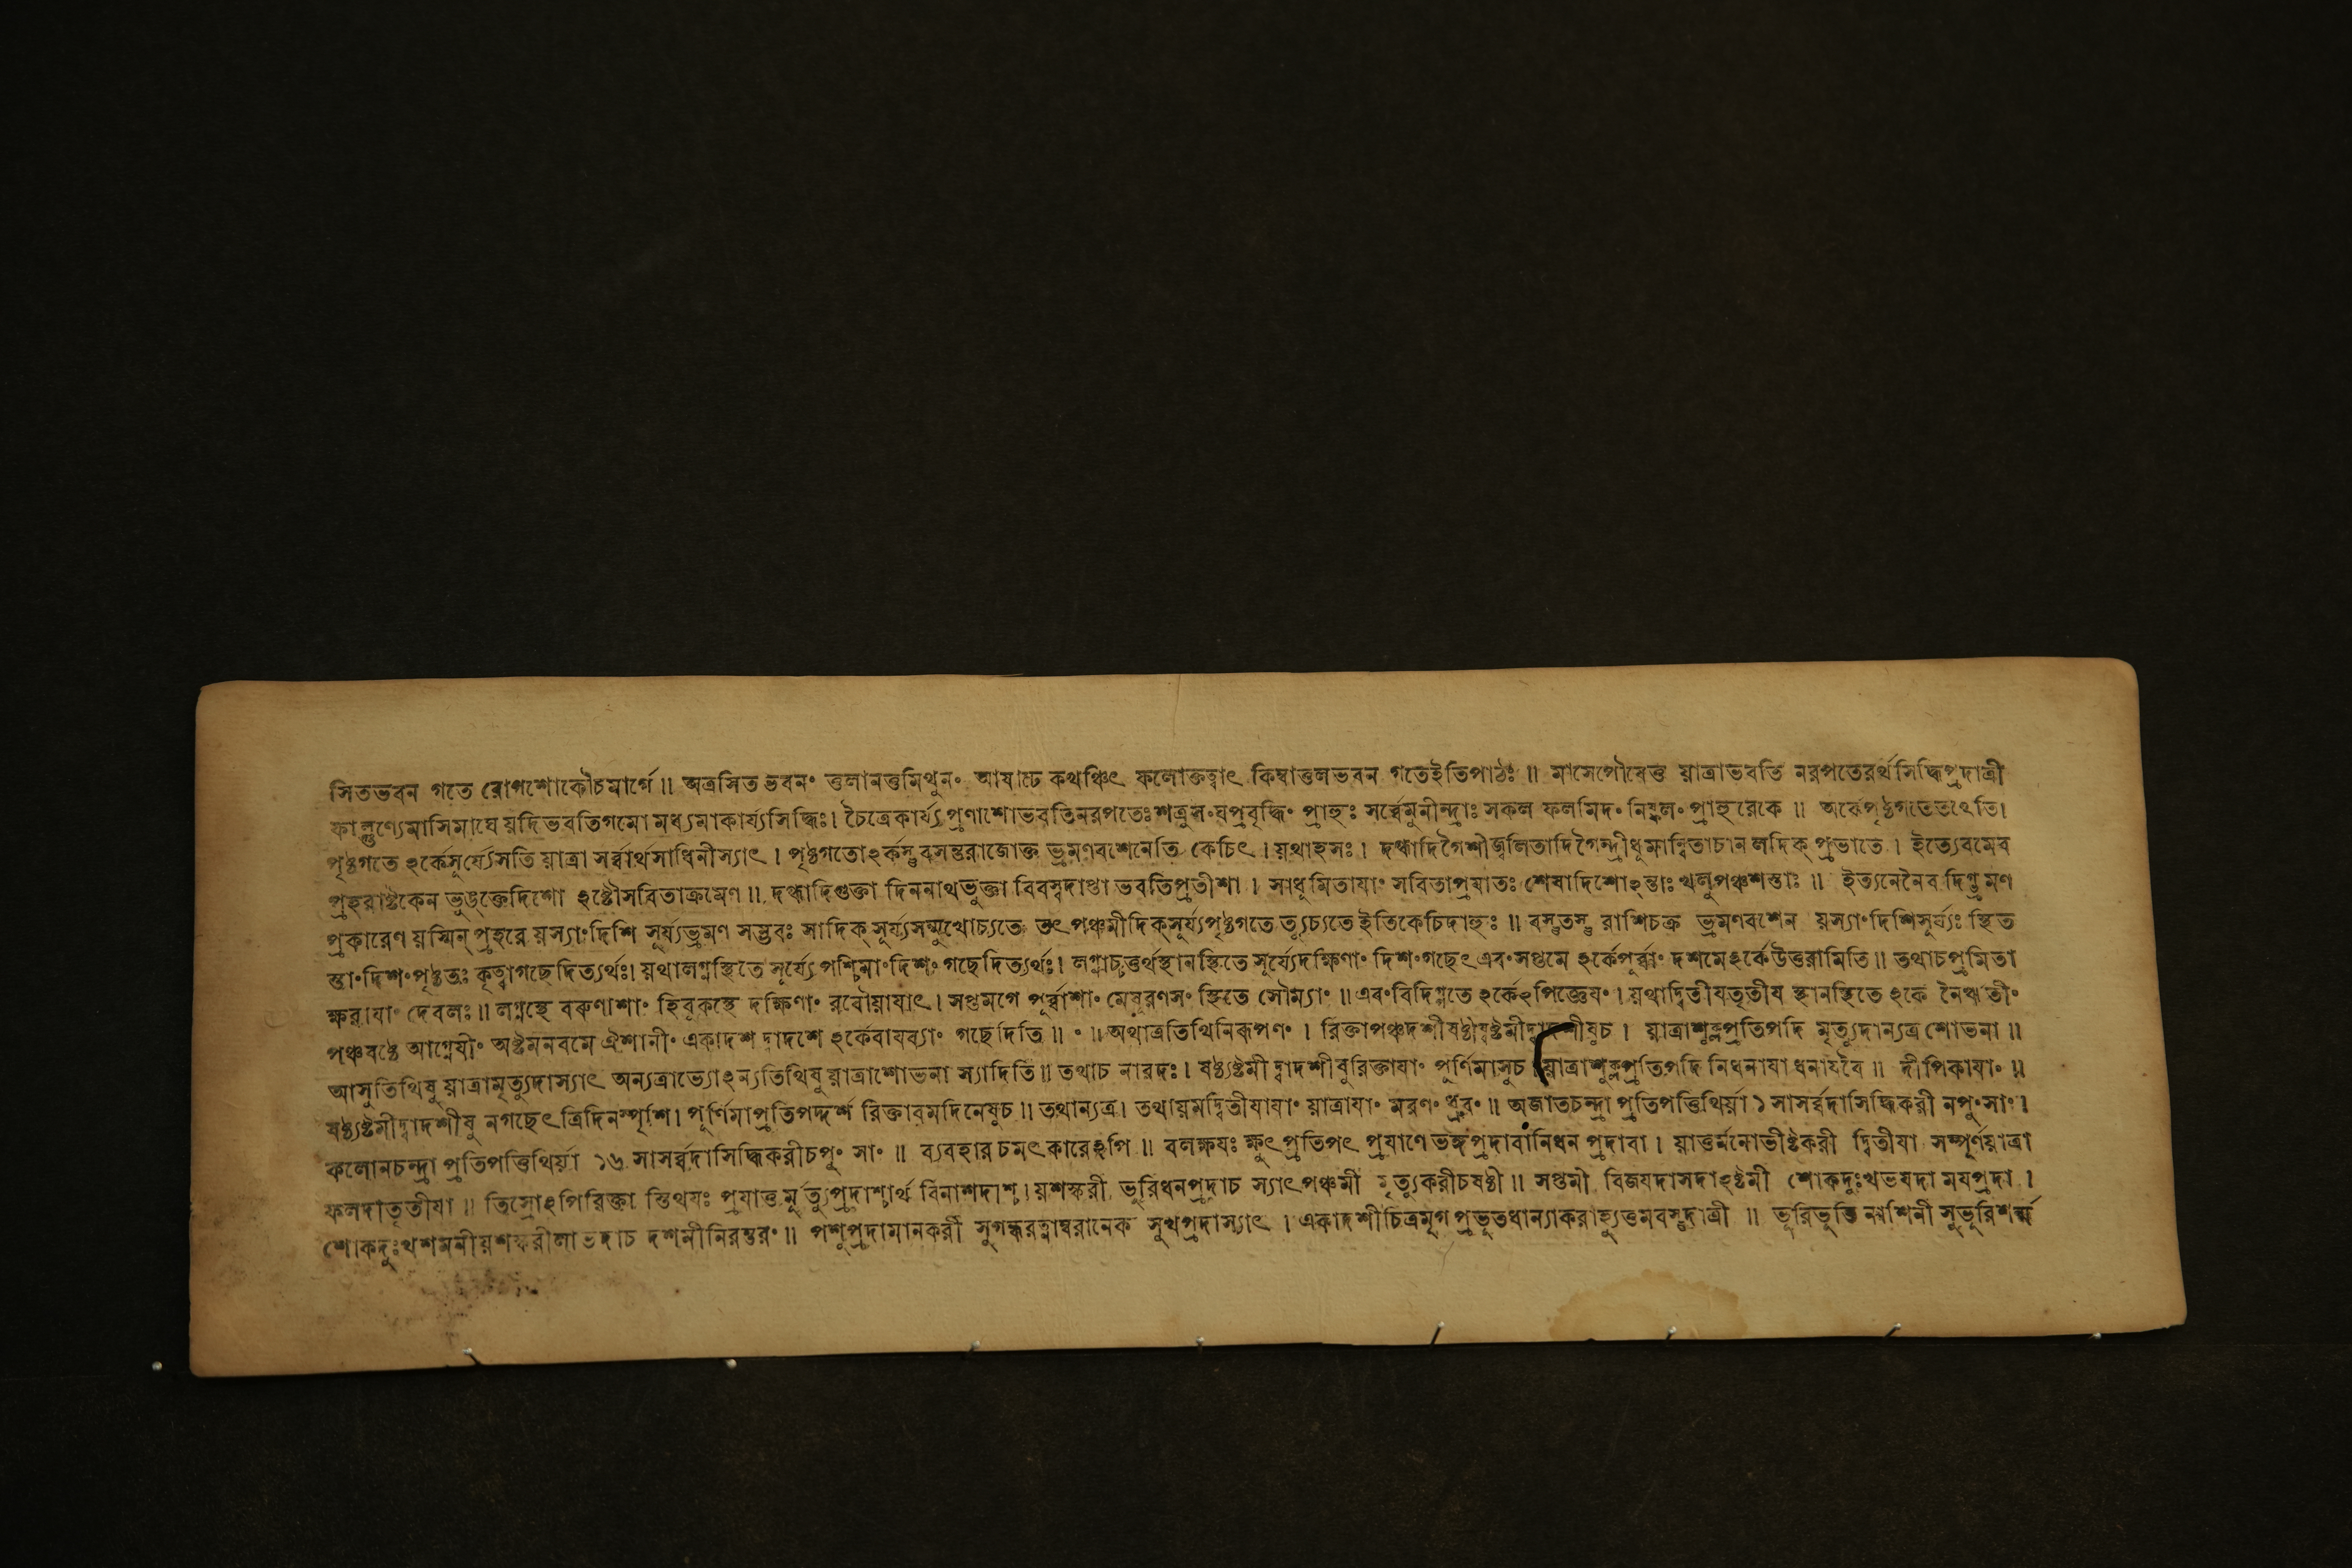 সিতভবন গতে রোগশোকৌচমার্গে॥ অত্রসিত ভবন॰ ত্তলানত্তমিথুন॰ আষাঢে কথঞ্চিৎ ফলোক্তত্বাৎ কিম্বাত্তলভবন গতেইতিপাঠঃ॥ মাসেপৌষেত্ত য়াত্রাভবতি নরপতেরর্থসিদ্ধিপ্রদাত্রী
ফাল্গুণ্যেমাসিমাঘে য়দিভবতিগমো মধ্যমাকার্য্যসিদ্ধিঃ। চৈত্রেকার্য্যপ্রণাশোভবতিনরপতেঃ প্রাহুঃ সর্ব্বেমুনীন্দ্রাঃ সকল ফলমিদ॰ নিষ্ফল॰ প্রাহুরেকে॥ অর্কেপৃষ্ঠগতেতথেতি।
পৃষ্ঠগতে ঽর্কেসূর্য্যেসতি য়াত্রা সর্ব্বার্থসাধিনীস্যাৎ। পৃষ্ঠগতোঽর্কস্তুবসন্তরাজোক্ত ভ্রমণবশেনেতি কেচিৎ। য়থাহসঃ। দগ্ধাদিগৈশীজ্বলিতাদিগৈন্দ্রীধুমান্বিতাচানলদিক্ প্রভাতে। ইত্যেবমেব
প্রহরাষ্টকেন ভুঙক্তেদিশো ঽষ্টৌসবিতাক্রমেণ॥ দগ্ধাদিগুক্তা দিননাথভুক্তা বিবস্বদাপ্তা ভবতিপ্রতীশা। সাধুমিতাযা॰ সবিতাপ্রযাতঃ শেষাদিশোঽন্তাঃ খলুপঞ্চশস্তাঃ॥ ইত্যনেনৈব দিগ্ভ্রমণ
প্রকারেণ য়স্মিন্ প্রহরে য়স্যা॰দিশি সূর্য্যভ্রমণ সম্ভবঃ সাদিক্ সূর্য্যসন্মুখোচ্যতে তৎ পঞ্চমীদিক্সূর্য্যপৃষ্ঠগতে ত্যুচ্যতে ইতিকেচিদাহুঃ॥ বস্তুতস্তু রাশিচক্র ভ্রমণবশেন য়স্যা॰দিশিসূর্য্যঃ স্থিত
স্তা॰দিশ॰পৃষ্ঠতঃ কৃত্বাগছেদিত্যর্থঃ। য়থালগ্নস্থিতে সূর্য্যেপশ্চিমা॰দিশ॰ গছেদিত্যর্থঃ। লগ্নাচ্চত্তর্থস্থানস্থিতে সূর্য্যেদক্ষিণা॰ দিশ॰গছেৎ এব॰সপ্তমে ঽর্কেপুর্ব্বা॰ দশমেঽর্কেউত্তরামিতি॥ তথাচপ্রমিতা
ক্ষরাযা॰ দেবলঃ॥ লগ্নস্থে বরুণাশা॰ হিবুকস্থে দক্ষিণা॰ রবৌয়াযাৎ। সপ্তমগে পূর্ব্বাশা॰ মেষুরণস॰ স্থিতে সৌম্যা॰॥ এব॰বিদিগ্গতে ঽর্কেঽপিজ্ঞেয॰। য়থাদ্বিতীযতৃতীয স্থানস্থিতে ঽর্কে নৈঋতী॰
পঞ্চষষ্ঠে আগ্নেযী॰ অষ্টমনবমে ঐশানী॰ একাদশ দ্বাদশে ঽর্কেবাযব্যা॰ গছেদিতি॥ ॰॥ অথাত্রতিথিনিরূপণ॰। রিক্তাপঞ্চদশীষষ্ঠীষষ্টমীদ্বাদশীষুচ। য়াত্রাশুক্লপ্রতিপদি মৃত্যুদান্যত্র শোভনা॥
আসুতিথিষু য়াত্রামৃত্যুদাস্যাৎ অন্যত্রাভ্যোঽন্যতিথিষু য়াত্রাশোভনা স্যাদিতি॥ তথাচ নারদঃ। ষষ্ঠ্যষ্টমী দ্বাদশীষুরিক্তাযা॰ পূর্ণিমাসুচ। য়াত্রাশুক্লপ্রতিপদি নিধনাযা ধনাযবৈ॥ দীপিকাযা॰॥
ষষ্ঠ্যষ্টমীদ্বাদশীষু নগছেৎ ত্রিদিনস্পৃশি। পূর্ণিমাপ্রতিপদ্দর্শ রিক্তাবমদিনেষুচ॥ তথান্যত্র। তথায়মদ্বিতীযাযা॰ য়াত্রাযা॰ মরণ॰ ধ্রুব॰॥ অজাতচন্দ্রা প্রতিপত্তিথির্য়া ১ সাসর্ব্বদাসিদ্ধিকরী নপু॰সা॰।
কলোনচন্দ্রা প্রতিপত্তিথির্য়া ১৬ সাসর্ব্বদাসিদ্ধিকরীচপু॰ সা॰॥ ব্যবহারচমৎকারেঽপি॥ বলক্ষযঃ ক্ষুৎ প্রতিপৎ প্রযাণে ভঙ্গপ্রদাবানিধন প্রদাবা। য়াত্তর্মনোভীষ্টকরী দ্বিতীযা সম্পূর্ণয়াত্রা
ফলদাতৃতীযা॥ তিস্রোঽপিরিক্তা স্তিথযঃ প্রযাত্তর্মৃত্যুপ্রদাশ্চার্থ বিনাশদাশ্চ। য়শস্করী ভূরিধনপ্রদাচ স্যাৎপঞ্চমী মৃত্যুকরীচষষ্ঠী॥ সপ্তমী বিজযদাসদাঽষ্টমী শোকদুঃখভযদা মযপ্রদা।
শোকদুঃখশমনীয়শস্করীলাভদাচ দশমীনিরন্তর॰॥ পশুপ্রদামানকরী সুগন্ধরত্নাম্বরানেক সুখপ্রদাস্যাৎ। একাদশীচিত্রমৃগ প্রভূতধান্যাকরাহ্যুত্তমবস্তুদাত্রী॥ ভূরিভুক্তি নাশিনী সুভূরিশর্ম্ম